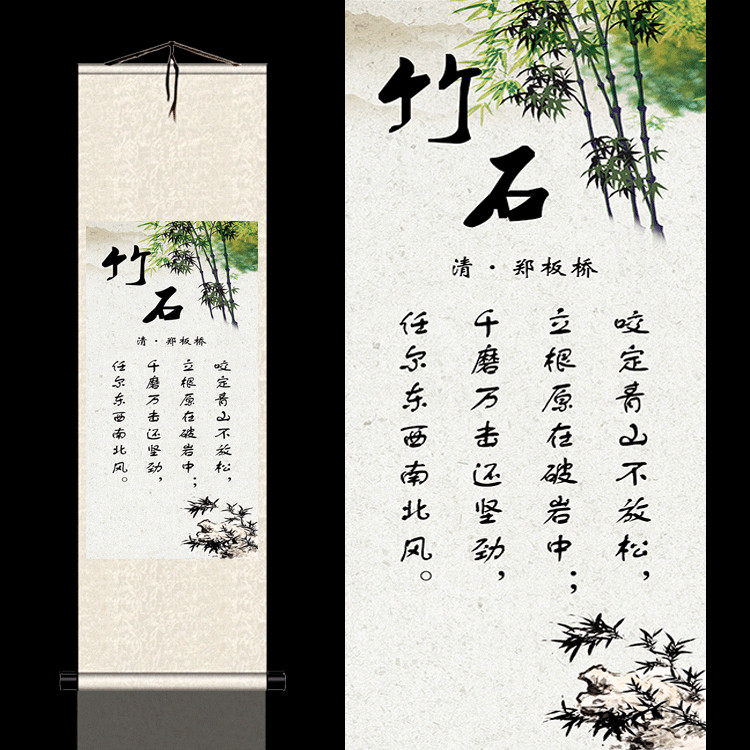 竹石
清·郑板桥
咬定青山不放松，
立根原在破岩中；
千磨万击还坚劲，
任尔东西南北风。
竹石
清·郑板桥
咬定青山不放松，
立根原在破岩中；
千磨万击还坚劲，
任尔东西南北风。